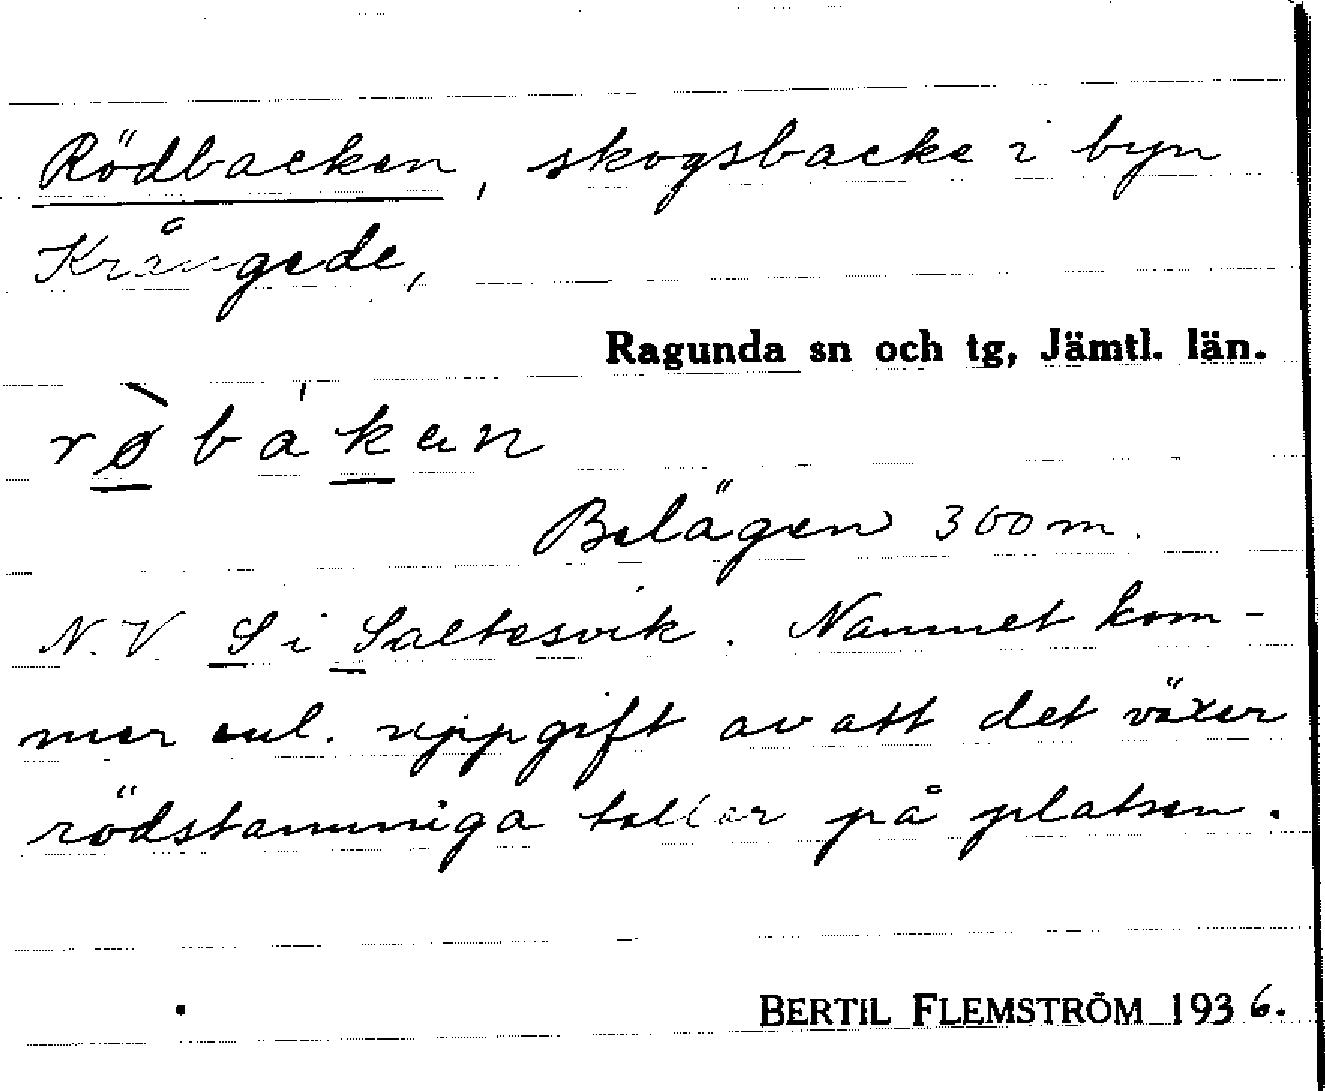 Rödbacken, skogsbacke i byn
Krångede,
Ragunda sn och tg, Jämtl. län.
rø̀bákan
Belägen 300 m.
N.V. S i Saltesvik. Namnet kom-
mer enl. uppgift av att det växer
rödstammiga tallar på platsen.
BERTIL FLEMSTRÖM 1936.